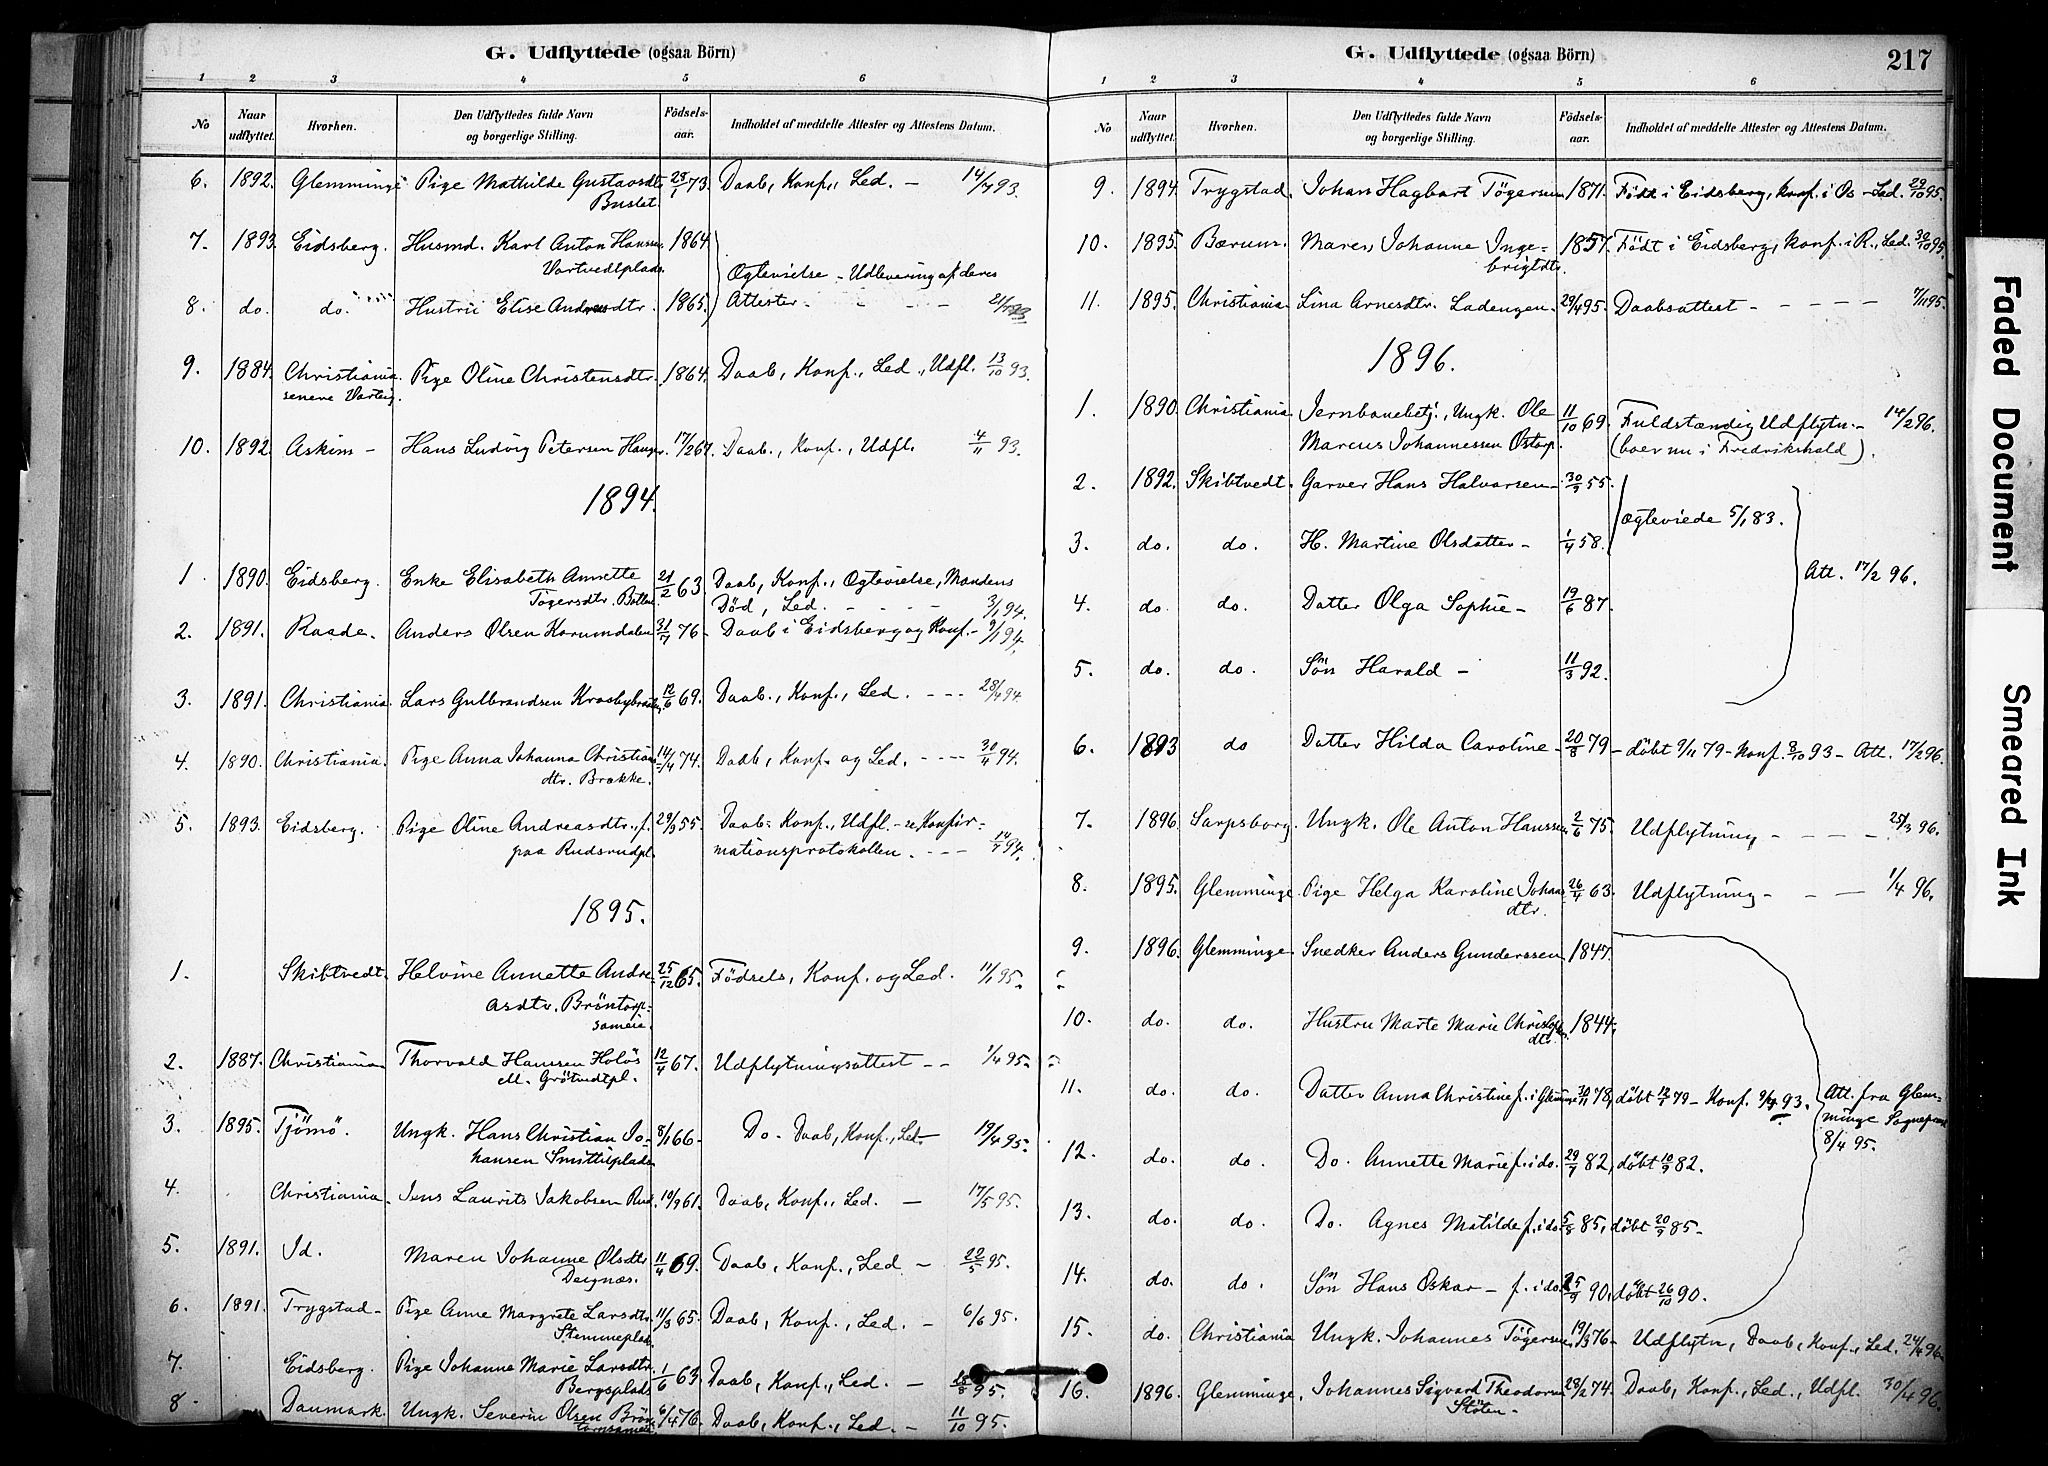 G. Udflyttede (ogsaa Börn)
1 2 3 4 5 6
No
Naar udflyttet.
Hvorhen.
Den Udflyttedes fulde Navn og borgerlige Stilling.
Födsels-aar.
Indholdet af meddelte Attester og Attestens Datum.
6. 1892. Glemminge Pige Mathilde Gustavsdtr. 73. Daab, Konf., Led. – 14/7 93.
Buslet
7. 1893. Eidsberg. Husmd. Karl Anton Hansen 1864
Vartvedtplads.
Ægtevielse – Udlevering af deres
8. do. do. Hustru Elise Andreasdtr. 1865. Attester - - - -
9. 1884. Christiania. Pige Oline Christensdtr. 1864. Daab, Konf., Led., Udfl. 13/10 93.
senere Varteig.
10. 1892. Askim – Hans Ludvig Petersen 17/2 67. Daab., Konf., Udfl. 4/11 93.
1894.
1. 1890. Eidsberg. Enke Elisabeth Annette 21/2 63. Daab, Konf., Ægtevielse, Mandens
Tøgersdtr. Död, Led. - - - 3/1 94.
2. 1891. Raade. Anders Olsen Korumdalen 31/7 76 – Daab i Eidsberg og Konf. – 9/1 94.
3. 1891. Christiania. Lars Gulbrandsen 12/6 69. Daab., Konf., Led. - - - 28/4 94.
4. 1890. Christiania. Pige Anna Johanna Christians 14/4 74. Daab, Konf. og Led. - - - 30/4 94.
dtr. Brække.
5. 1893. Eidsberg. Pige Oline Andreasdtr. f. 29/3 55. Daab- Konf., Udfl. – se Konfir-
paa Rudsrudpl. mationsprotokollen. - - - 14/9 94.
1895.
1. Skibtvedt. Helvine Annette Andre- 25/12 65. Födsels, Konf. og Led. 11/1 95.
asdtr. Bröntorp-
sameie.
2. 1887. Christiania Thorvald Hansen Holös 12/4 67. Udflytningsattest - - 1/4 95.
ell. Grötvedtpl.
3. 1895. Tjömö. Ungk. Hans Christian Jo- 8/1 66 – Do. Daab, Konf., Led. – 19/4 95.
hansen Smittilplads.
4. Christiania. Jens Laurits Jakobsen Rud. 10/9 61. Daab, Konf., Led. – 17/5 95.
5. 1891. Id. Maren Johanne Olsdtr. 11/4 69. Daab, Konf., Led. – 22/5 95.
Deignæs.
6. 1891. Trygstad – Pige Anne Margrete Larsdtr. 11/3 65. Daab, Konf., Led. – 6/6 95.
Stemmeplads
7. Eidsberg. Pige Johanne Marie Larsdtr. 1/6 63. Daab, Konf., Led. – 95.
Bergsplads
8. Danmark. Ungk. Severin Olsen 6/4 76. Daab, Konf., Led. – 11/10 95.
G. Udflyttede (ogsaa Börn)
217
1 2 3 4 5 6
No
Naar udflyttet.
Hvorhen.
Den Udflyttedes fulde Navn og borgerlige Stilling.
Födsels-aar.
Indholdet af meddelte Attester og Attestens Datum.
9. 1894. Trygstad. Johan Hagbart Tögersen 1871. Født i Eidsberg, konf. i Os – Led. 29/10 95.
10. 1895. Bærum. Maren Johanne Inge- 1857. Födt i Eidsberg, Konf. i R., Led. 30/10 95.
brigtdtr.
11. 1895. Christiania. Lina Arnesdtr. Ladengen. 29/4 95. Daabsattest - - - - - 7/11 95.
1896.
1. 1890. Christiania. Jernbanebetj., Ungk. Ole 11/10 69. Fuldstændig Udflytn. – 14/2 96.
Marcus Johannessen Østorp. (boer nu i Fredrikshald).
2. 1892. Skibtvedt. Garver Hans Halvorsen – 30/9 55.
Ægteviede 5/1 83.
3. do. do. H. Martine Olsdatter – 1/4 58.
Att. 17/2 96.
4. do. do. Datter Olga Sophie – 19/6 87.
5. do. do. Søn Harald – 11/3 92.
6. 1893 do Datter Hilda Caroline – 20/8 79 – döbt 9/11 79 – Konf. 8/10 93 – Att. 17/2 96.
7. 1896. Sarpsborg. Ungk. Ole Anton Hanssen 2/6 75. Udflytning - - - 25/3 96.
8. 1895. Glemminge. Pige Helga Karoline Johans 26/4 63. Udflytning - - - 1/4 96.
dtr.
9. 1896. Glemminge. Snedker Anders Gunderssen 1847.
10. do. do. Hustru Marte Marie 1844.
dtr.
11. do. do. Datter Anna Christine f. i Glemminge 30/11 78, döbt 79 – Konf. 93. Att. fra Glem-
minge Sognepræst
8/4 95.
12. do. do. Do. Annette Marie f. i do. 29/7 82, döbt 10/9 82.
13. do. do. Do. Agnes Matilde f. i do. 5/8 85, döbt 20/9 85 –
14. do. do. Søn Hans Oskar – f. i do. 90, döbt 26/10 90.
15. do. Christiania Ungk. Johannes Tögersen 19/3 76 – Udflytn, Daab, Konf., Led. 24/4 96.
16. 1896. Glemminge. Johannes Sigvard Theodorsen 28/2 74. Daab, Konf., Led., Udfl. 30/4 96.
Stöten –
Faded Document
Smeared Ink